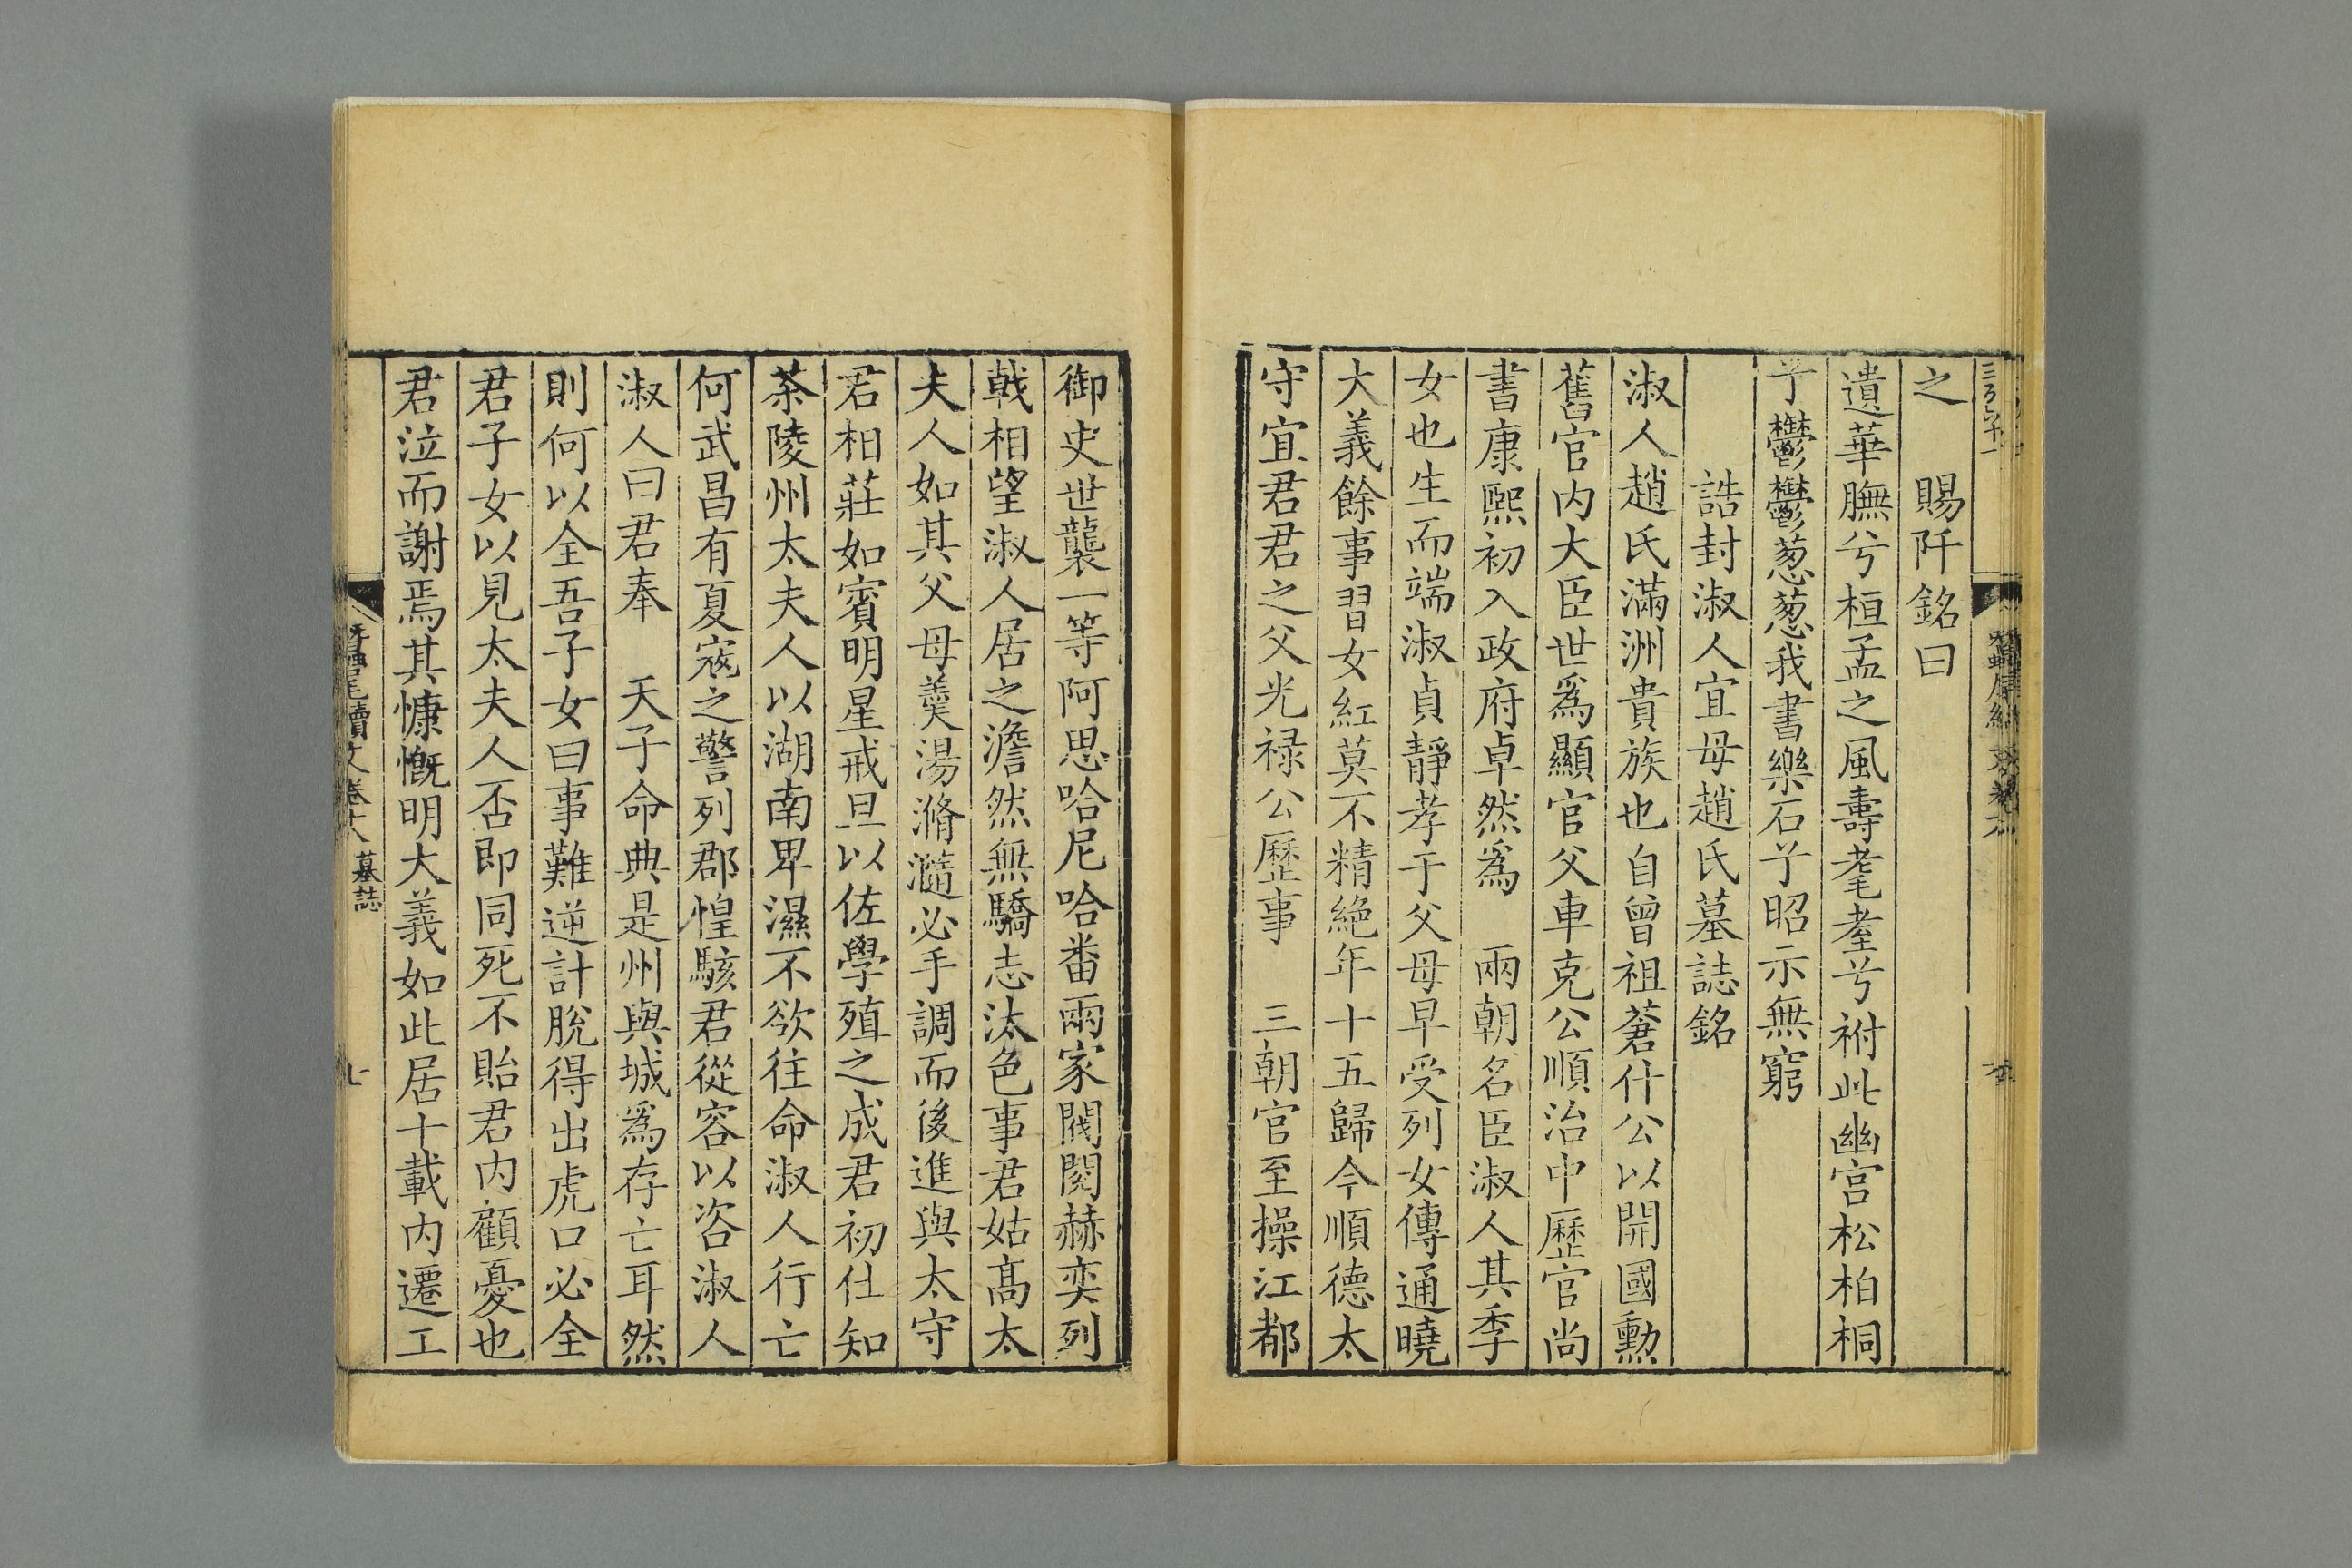 之　賜阡銘曰
遺華膴兮桓孟之風壽耄耋兮祔此幽宮松柏桐
兮鬱鬱葱葱我書樂石兮昭示無窮
誥封淑人宜母趙氏墓誌銘
淑人趙氏滿洲貴族也自曾祖蒼什公以開國勳
舊官内大臣世爲顯官父車克公順治中歷官尚
書康熙初入政府卓然爲　兩朝名臣淑人其季
女也生而端淑貞靜孝于父母早受列女傳通曉
大義餘事習女紅莫不精絶年十五歸今順德太
守宜君君之父光禄公歷事　三朝官至操江都
御史世襲一等阿思哈尼哈番兩家閥閱赫奕列
戟相望淑人居之澹然無驕志汰色事君姑髙太
夫人如其父母羮湯滫瀡必手調而後進與太守
君相莊如賓明星戒旦以佐學殖之成君初仕知
茶陵州太夫人以湖南卑濕不欲往命淑人行亡
何武昌有夏寇之警列郡惶駭君從容以咨淑人
淑人曰君奉　天子命典是州與城爲存亡耳然
則何以全吾子女曰事難逆計脫得出虎口必全
君子女以見太夫人否即同死不貽君内顧憂也
君泣而謝焉其慷慨明大義如此居十載内遷工
蠶尾續文卷十八 墓誌
七